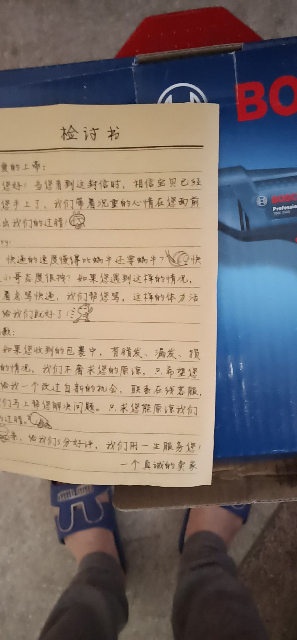 检讨书
BO
BOSCH
Professional
爱的上帝:
您好! 当您看到这封信时, 相信宝贝已经
您手上了, 我们带着沉重的心情在您面前
出我们的过错!
快递的速度慢得比蜗牛还要蜗牛? 快
小哥态度很拽? 如果您遇到这样的情况,
着急骂快递, 我们帮您骂, 这样的体力活
给我们就好了!
歉:
如果您收到的包裹中, 有错发、漏发、损
的情况, 我们不奢求您的原谅, 只希望您
给我一个改过自新的机会, 联系在线客服,
们马上替您解决问题, 只求您能原谅我们
的过错,
来, 给我们5分好评, 我们用一生服务您!
一个真诚的卖家